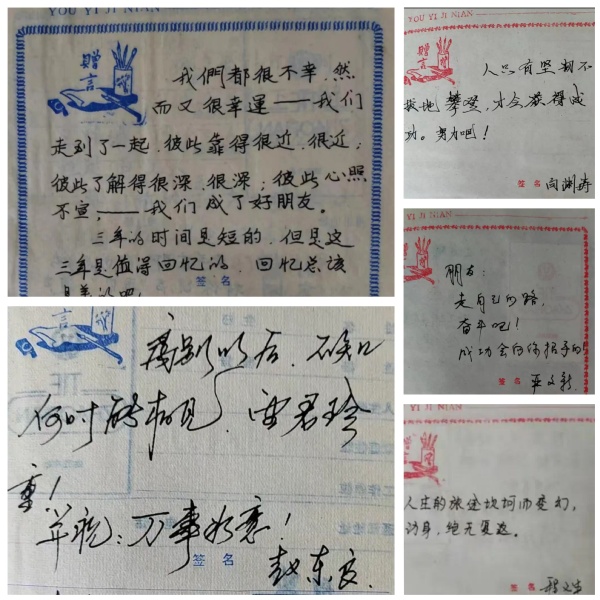 YOU YI JI NIAN
贈言
我們都很不幸,然
而又很幸運——我们
走到了一起,彼此靠得很近、很近;
彼此了解得很深、很深;彼此心照
不宣,——我们成了好朋友。
三年的时间是短的,但是这
三年是值得回忆的,回忆总该
签名
是美的吧
言
离别以后,不知
何时能相见,
重!
并祝:万事如意!
签名
赵东良
YOU YI JI NIAN
贈言
人只有坚韧不
拔地攀登,才会获得成
功。努力吧!
签名
YI JI NIAN
朋友:
走自己的路,
奋斗吧!
成功会向你招手的!
签名
YI JI NIAN
人生的旅途坎坷而变幻,
动身,绝无复返。
签名